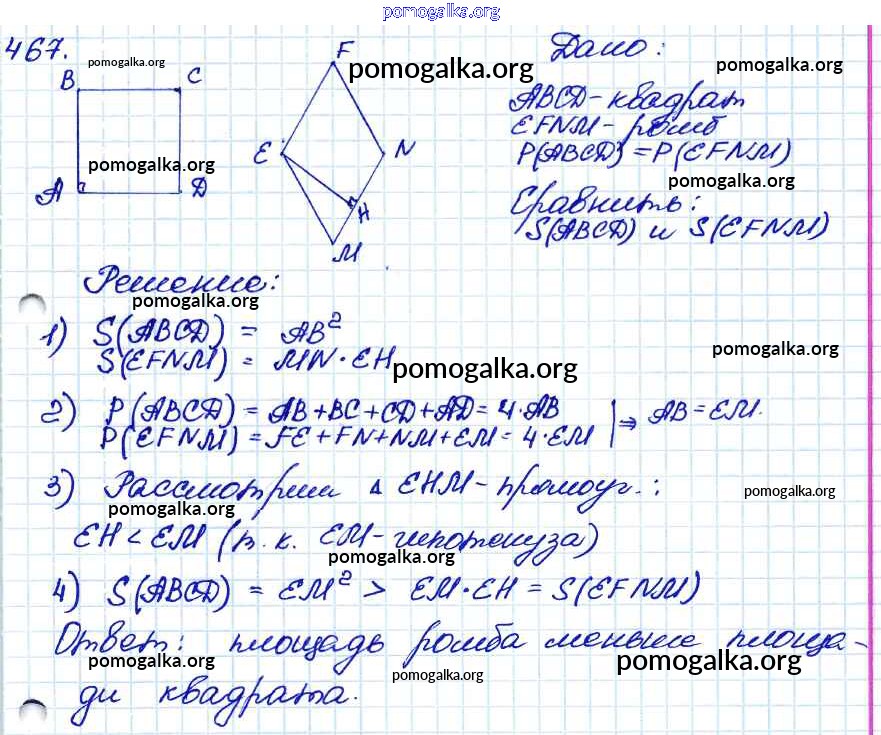 pomogalka.org
467.
pomogalka.org
B C
A D
pomogalka.org
F
E N
H
M
pomogalka.org
Дано:
pomogalka.org
ABCD - квадрат
EFNM - ромб
P(ABCD) = P(EFNM)
pomogalka.org
Сравнить:
S(ABCD) и S(EFNM)
Решение:
pomogalka.org
1) S(ABCD) = AB²
S(EFNM) = MN · EH
pomogalka.org
pomogalka.org
2) P(ABCD) = AB + BC + CD + AD = 4·AB
P(EFNM) = FE + FN + NM + EM = 4·EM | ⇒ AB = EM.
3) Рассмотрим Δ EHM - прямоуг.:
pomogalka.org
pomogalka.org
EH < EM (т.к. EM - гипотенуза)
pomogalka.org
4) S(ABCD) = EM² > EM·EH = S(EFNM)
Ответ: площадь ромба меньше площа-
pomogalka.org
pomogalka.org
pomogalka.org
ди квадрата.